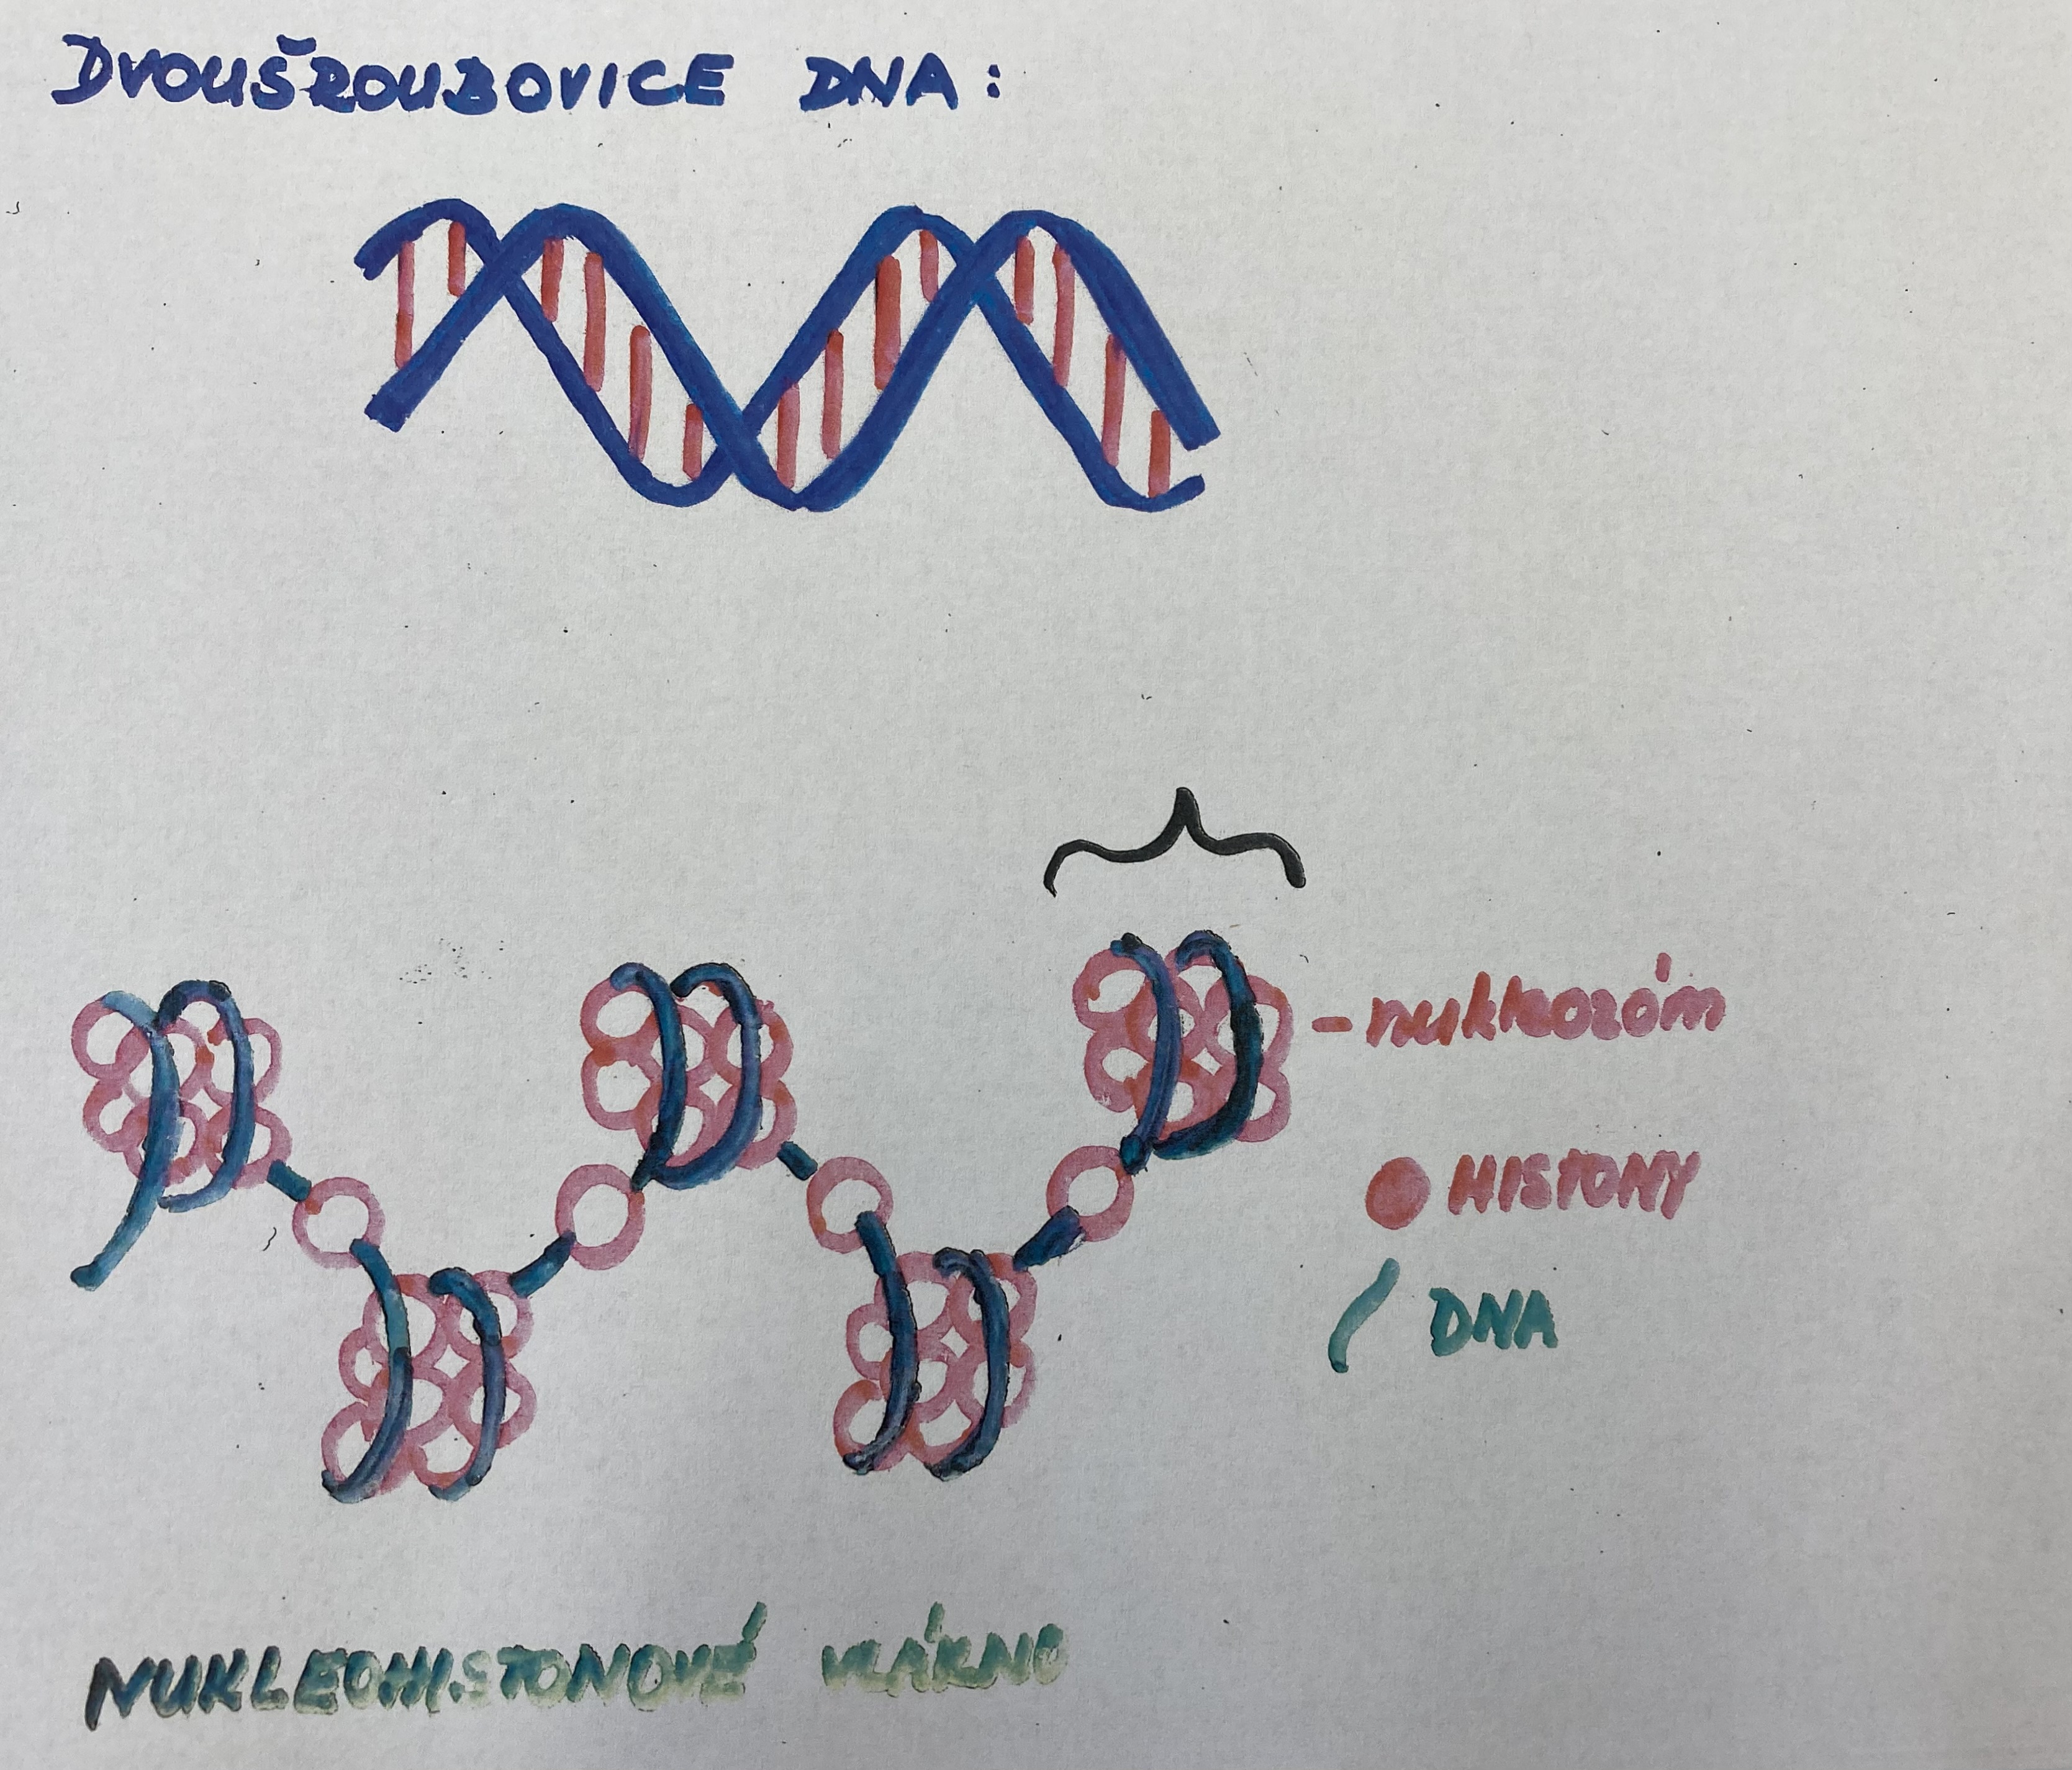 DVOUŠROUBOVICE DNA:
- nukleozóm
HISTONY
DNA
NUKLEOHISTONOVÉ VLÁKNO